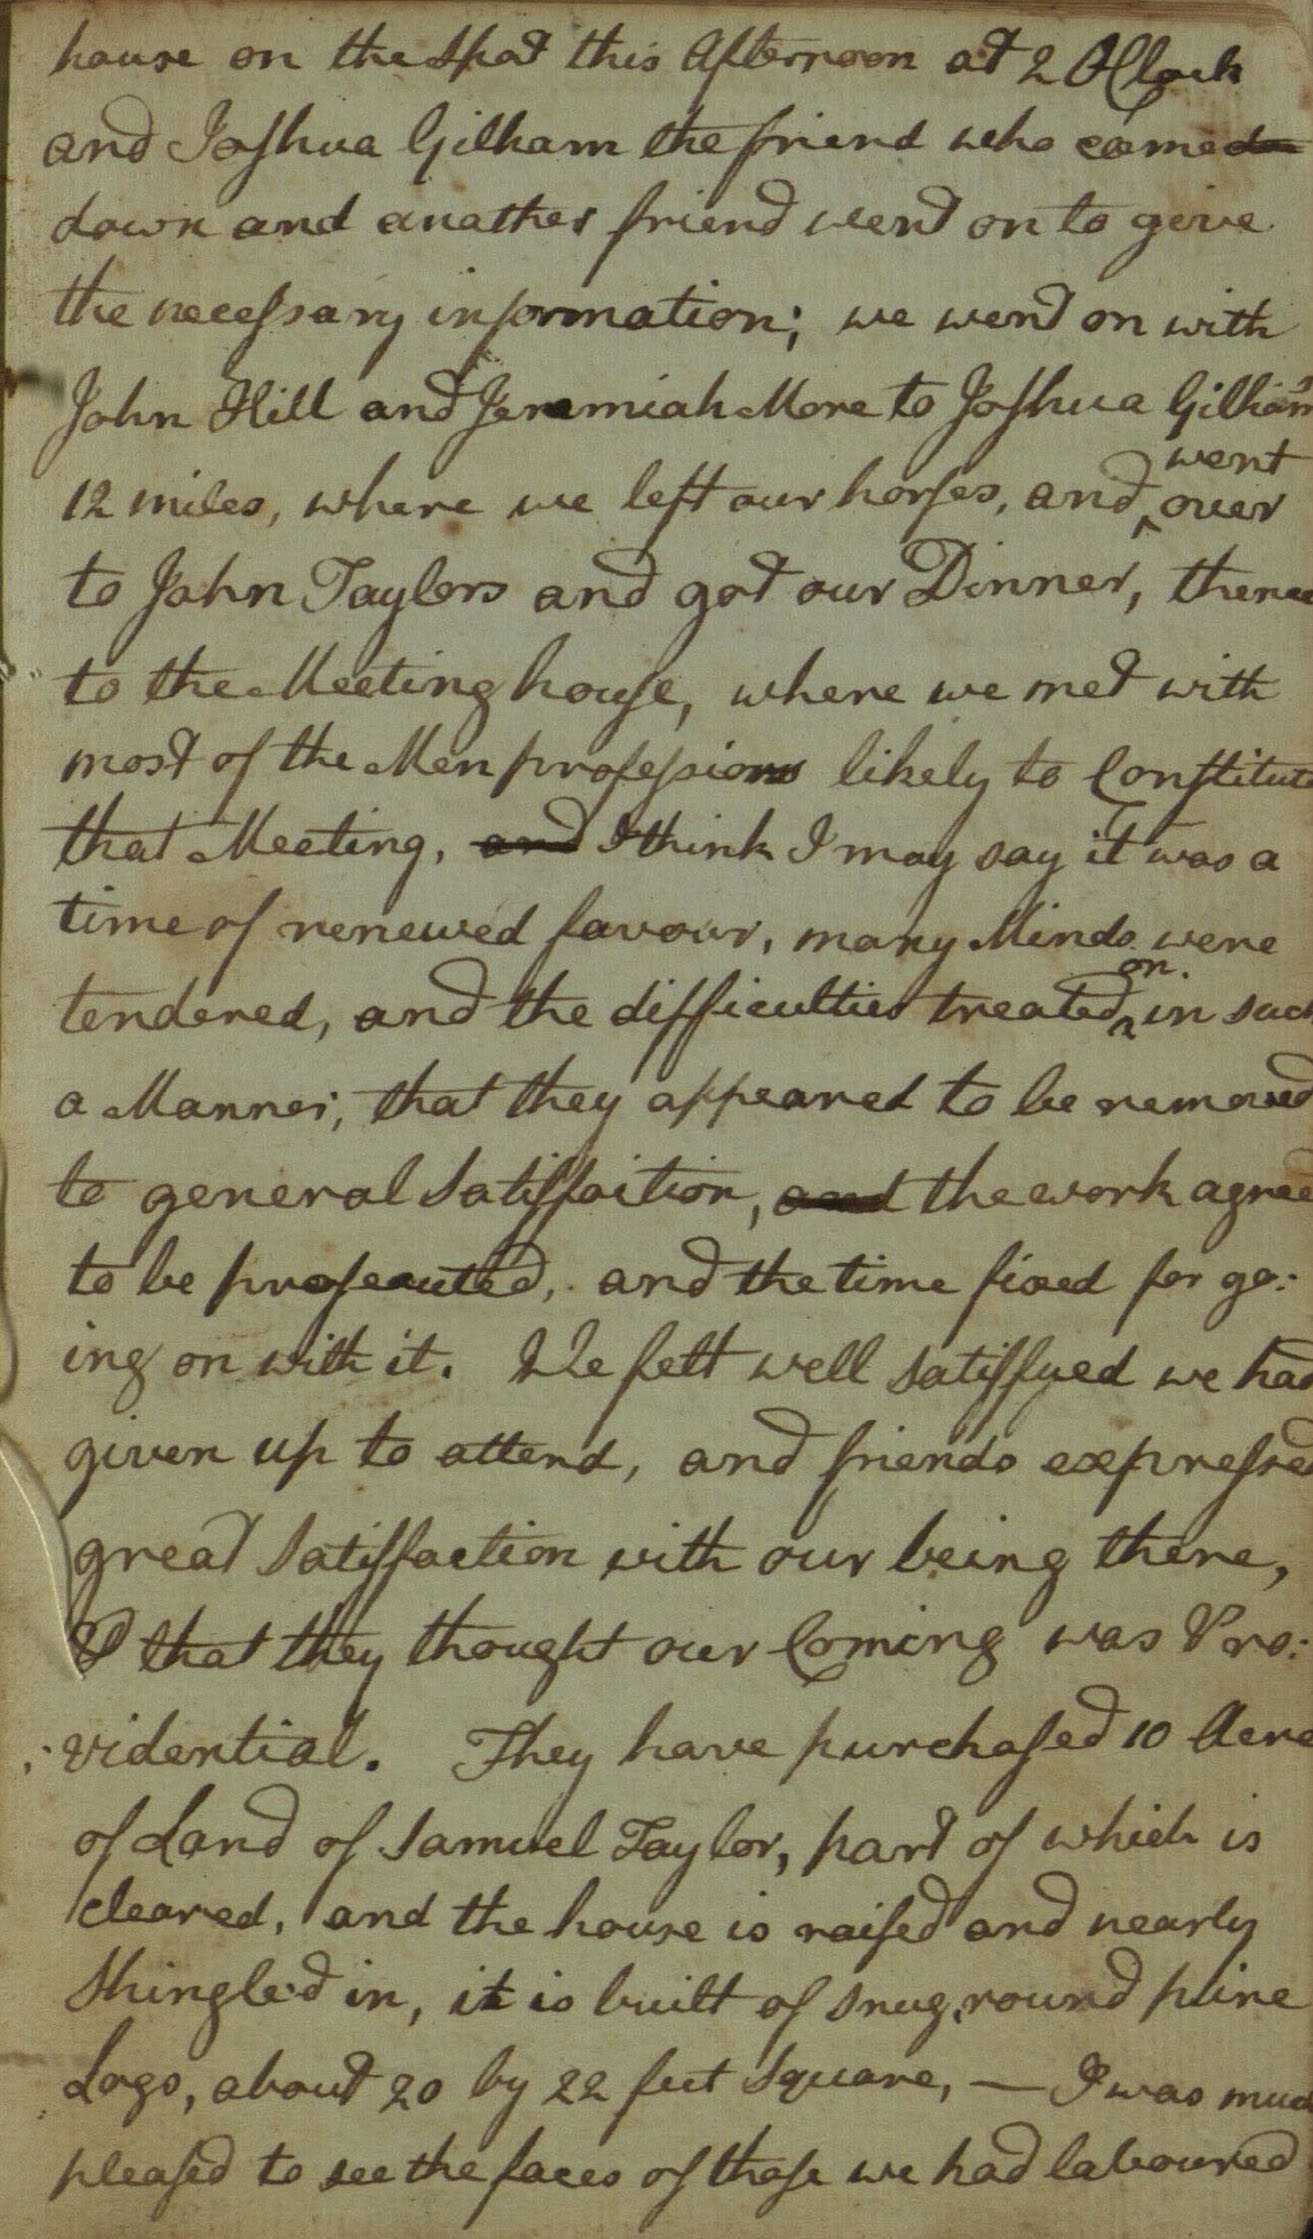 house on the Spot this Afternoon at 2 OClock
and Joshua Gilham the friend who came do
down and another friend went on to give
the necessary information; we went on with
John Hill and Jeremiah More to Joshua Gilhams
12 miles, where we left our horses, and went over
to John Taylors and got our Dinner, thence
to the Meeting house, where we met with
most of the Men professions likely to Constitute
that Meeting, and I think I may say it was a
time of renewed favour, many Minds were
tendered, and the difficulties treated on in such
a Manner, that they appeared to be removed
to general Satisfaction, and the work agreed
to be prosecuted, and the time fixed for go:
ing on with it. We felt well satisfyed we had
given up to attend, and friends expressed
great Satisfaction with our being there,
& that they thought our Coming was Pro:
:vidential. They have purchased 10 Acre
of Land of Samuel Taylor, part of which is
cleared, and the house is raised and nearly
Shingled in, it is built of snug round pine
Logs, about 20 by 22 feet Square, — I was much
pleased to see the faces of those we had laboured